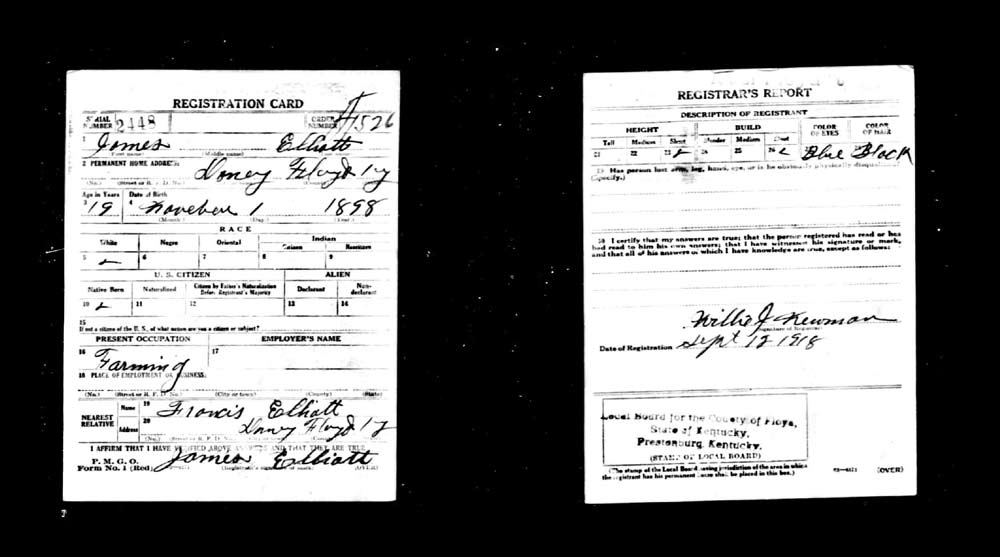 REGISTRATION CARD
SERIAL NUMBER 2448 ORDER NUMBER A1526
1 James Elliott
(First name) (Middle name)
2 PERMANENT HOME ADDRESS:
Honey Floyd Ky
(No.) (Street or R. F. D. No.)
Age in Years Date of Birth
3 19 4 November 1 1898
(Month) (Day) (Year)
RACE
White Negro Oriental Indian
Citizen Noncitizen
5 ✓ 6 7 8 9
U. S. CITIZEN ALIEN
Native Born Naturalized Citizen by Father's Naturalization Before Registrant's Majority Declarant Non-declarant
10 ✓ 11 12 13 14
15
If not a citizen of the U. S., of what nation are you a citizen or subject?
PRESENT OCCUPATION EMPLOYER'S NAME
16 Farming 17
18 PLACE OF EMPLOYMENT OR BUSINESS:
(No.) (Street or R. F. D. No.) (City or town) (County) (State)
NEAREST RELATIVE Name 19 Francis Elliott
Address 20 Floyd Ky
(No.) (Street or R. F. D. No.) (City or town)
I AFFIRM THAT I HAVE VERIFIED ABOVE ANSWERS AND THAT THEY ARE TRUE
P. M. G. O.
Form No. 1 (Red) James Elliott (OVER)
REGISTRAR'S REPORT
DESCRIPTION OF REGISTRANT
HEIGHT BUILD COLOR OF EYES COLOR OF HAIR
Tall Medium Short Slender Medium Stout
21 22 23 ✓ 24 25 26 ✓ Blue Black
29 Has person lost arm, leg, hand, eye, or is he obviously physically disqualified?
(Specify.)
30 I certify that my answers are true; that the person registered has read or has
had read to him his own answers; that I have witnessed his signature or mark,
and that all of his answers of which I have knowledge are true, except as follows:
Willie J Newman
(Signature of Registrar)
Date of Registration Sept 12 1918
Local Board for the County of Floyd,
State of Kentucky,
Prestonburg, Kentucky.
(STAMP OF LOCAL BOARD)
(The stamp of the Local Board having jurisdiction of the area in which
the registrant has his permanent home shall be placed in this box.)
(OVER)